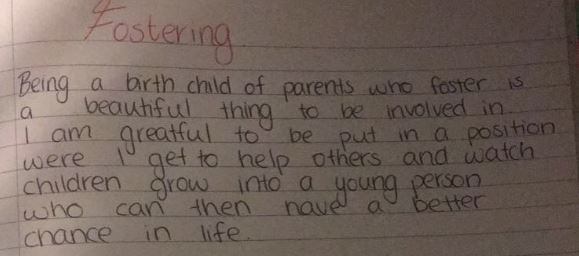 Fostering
Being a birth child of parents who foster is
a beautiful thing to be involved in
I am greatful to be put in a position
were I get to help others and watch
children grow into a young person
who can then have a better
chance in life.